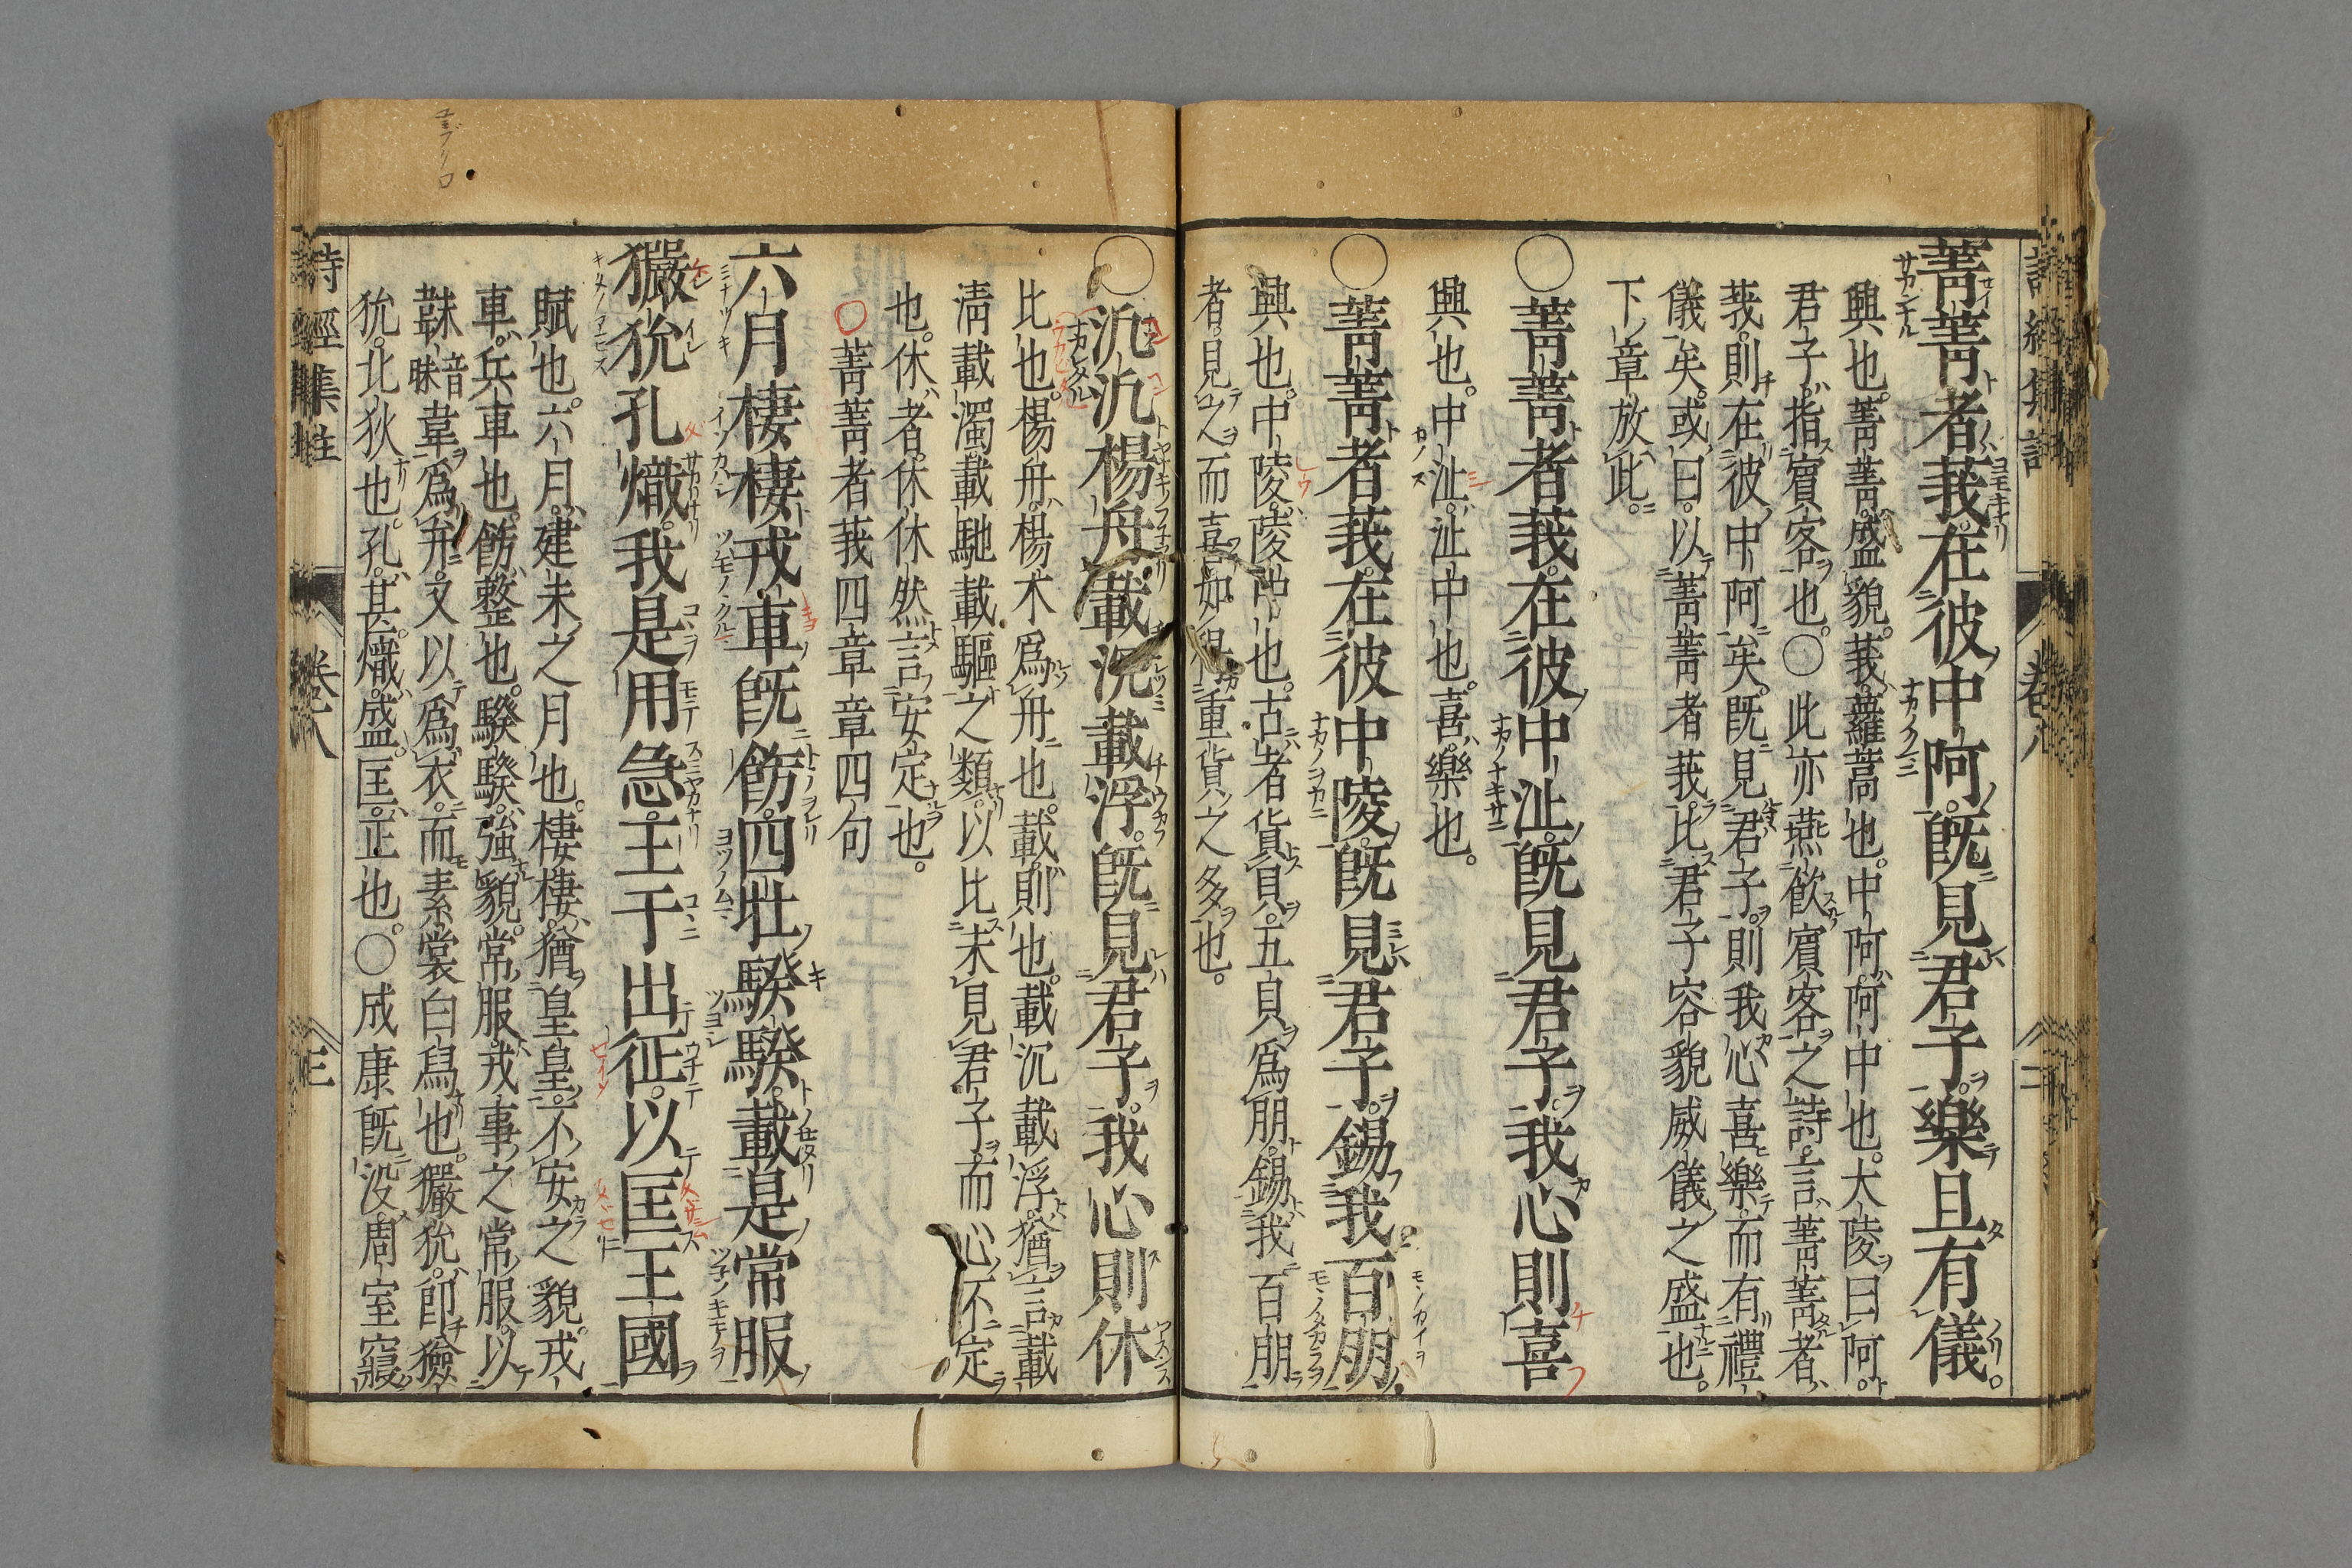 菁菁者莪。在彼中阿。既見君子。樂且有儀。
興也。菁菁。盛貌。莪。蘿蒿也。中阿。阿中也。大陵曰阿。
君子。指賓客也。○此亦燕飲賓客之詩。言菁菁者
莪。則在彼中阿矣。既見君子。則我心喜樂而有禮
儀矣。或曰。以菁菁者莪。比君子容貌威儀之盛也。
下章放此。
○菁菁者莪。在彼中沚。既見君子。我心則喜
興也。中沚。沚中也。喜。樂也。
○菁菁者莪。在彼中陵。既見君子。錫我百朋。
興也。中陵。陵中也。古者貨貝。五貝爲朋。錫我百朋
者。見之而喜。如得重貨之多也。
○汎汎楊舟。載沉載浮。既見君子。我心則休
比也。楊舟。楊木爲舟也。載。則也。載沉載浮。猶言載
清載濁載馳載驅之類。以比未見君子。而心不定
也。休者。休休然。言安定也。
○菁菁者莪四章章四句
六月棲棲。戎車既飭。四牡騤騤。載是常服
玁狁孔熾。我是用急。王于出征。以匡王國
賦也。六月。建未之月也。棲棲。猶皇皇。不安之貌。戎
車。兵車也。飭。整也。騤騤。強貌。常服。戎事之常服。以
韎音昧韋爲弁。又以爲衣。而素裳白舄也。玁狁。卽獫
狁。北狄也。孔。甚。熾。盛。匡。正也。○成康既没。周室寖
詩經集註
卷八
二
詩經集註
卷八
三